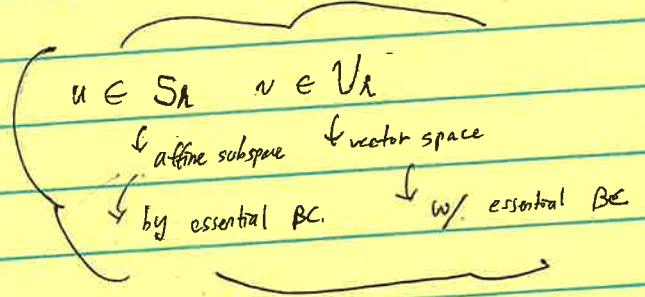 u ∈ Sh v ∈ Vh
↓ affine subspace ↓ vector space
↓ by essential BC. ↓ w/ essential BC